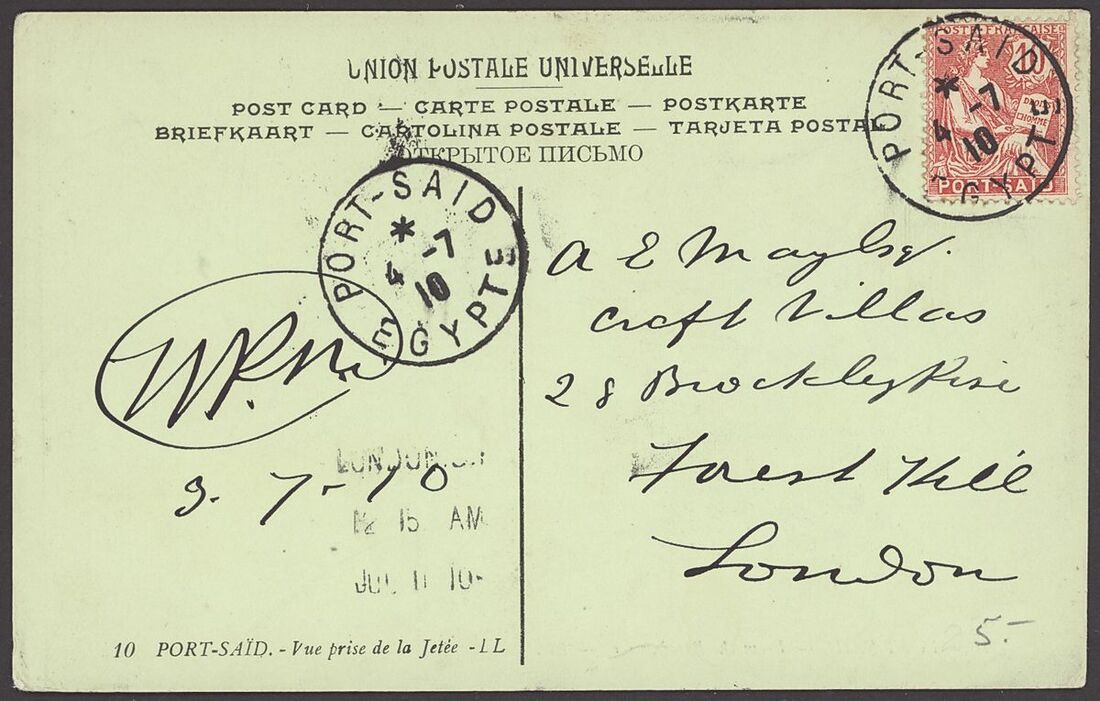 UNION POSTALE UNIVERSELLE
POST CARD — CARTE POSTALE — POSTKARTE
BRIEFKAART — CARTOLINA POSTALE — TARJETA POSTAL
ОТКРЫТОЕ ПИСЬМО
POSTE FRANÇAISE
10
DROITS DE L'HOMME
PORT-SAID
PORT-SAID EGYPTE
* 4 -7 10
PORT-SAID EGYPTE
* 4 -7 10
3-7-10
LONDON
12 15 AM
JUL 11 10
A E May Esq.
Croft Villas
28 Brockley Rise
Forest Hill
London
5.-
10 PORT-SAÏD. - Vue prise de la Jetée - LL